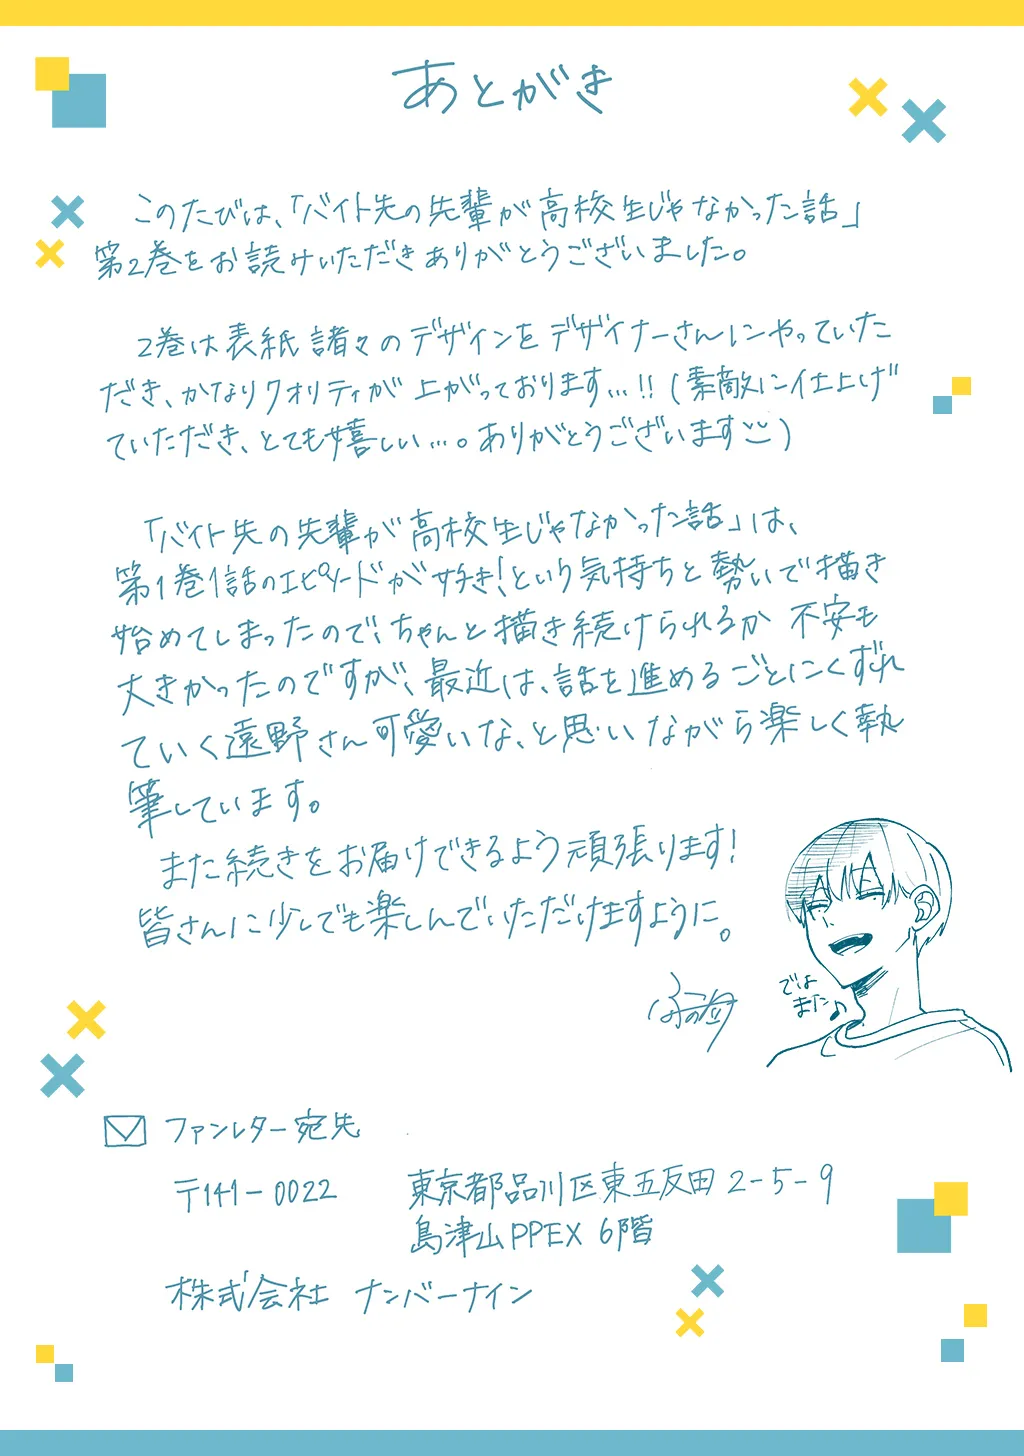 あとがき
このたびは、「バイト先の先輩が高校生じゃなかった話」
第2巻をお読みいただきありがとうございました。
2巻は表紙諸々のデザインをデザイナーさんにやっていた
だき、かなりクオリティが上がっております…!!(素敵に仕上げ
ていただき、とても嬉しい…。ありがとうございます)
「バイト先の先輩が高校生じゃなかった話」は、
第1巻1話のエピソードが好き!という気持ちと勢いで描き
始めてしまったので、ちゃんと描き続けられるか不安も
大きかったのですが、最近は、話を進めるごとにくずれ
ていく遠野さん可愛いな、と思いながら楽しく執
筆しています。
また続きをお届けできるよう頑張ります!
皆さんに少しでも楽しんでいただけますように。
では
また♪
ファンレター宛先
〒141-0022 東京都品川区東五反田2-5-9
島津山PPEX 6階
株式会社 ナンバーナイン